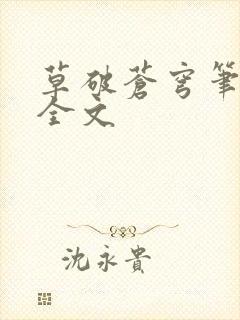 草破蒼穹筆
全文
沈永貴